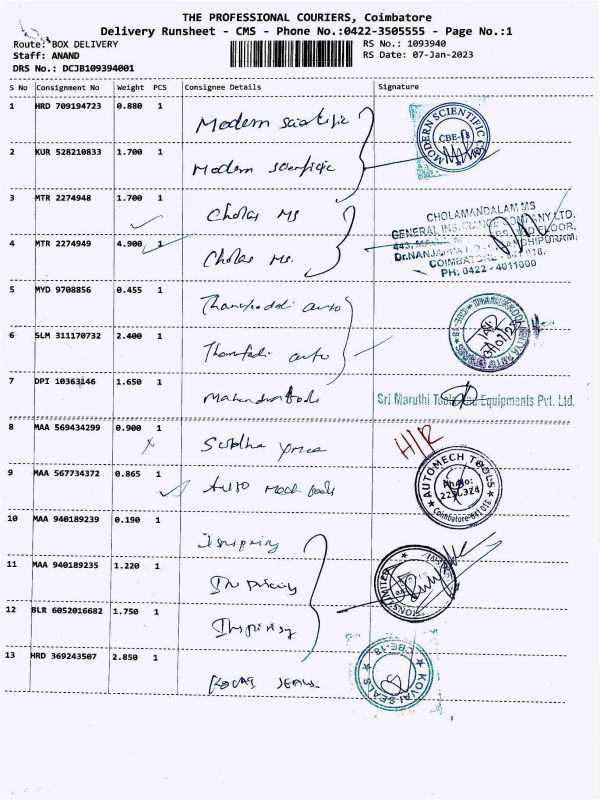 THE PROFESSIONAL COURIERS, Coimbatore
Delivery Runsheet - CMS - Phone No.:0422-3505555 - Page No.:1
Route: BOX DELIVERY
RS No.: 1093940
Staff: ANAND
RS Date: 07-Jan-2023
DRS No.: DCJB109394001
S No Consignment No Weight PCS Consignee Details Signature
1 HRD 709194723 0.880 1 Modern scientific
MODERN SCIENTIFIC CO
CBE-18
2 KUR 528210833 1.700 1 Modern scientific
3 MTR 2274948 1.700 1 Cholas MS
CHOLAMANDALAM MS
GENERAL INSURANCE COMPANY LTD.
FLOOR,
4 MTR 2274949 4.900 1 Cholas Ms.
COIMBATORE - 641 018.
PH: 0422 - 4011000
5 MYD 9708856 0.455 1 auto
6 SLM 311170732 2.400 1 auto
CBE-18
7 DPI 10363146 1.650 1
Sri Maruthi Tools and Equipments Pvt. Ltd.
8 MAA 569434299 0.900 1
H/R
9 MAA 567734372 0.865 1 Auto Mech tools
AUTOMECH TOOLS
Ph No:
Coimbatore-641 016
10 MAA 940189239 0.190 1
11 MAA 940189235 1.220 1
LIMITED
12 BLR 6052016682 1.750 1
13 HRD 369243507 2.850 1 KOVAI SEALS
KOVAI SEALS
CBE-18